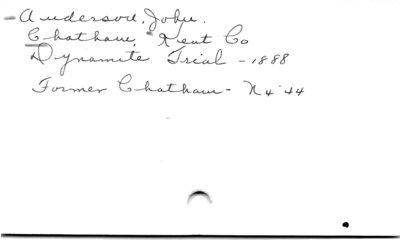 Anderson, John.
Chatham, Kent Co
Dynamite Trial - 1888
Former Chatham - N 4 '44